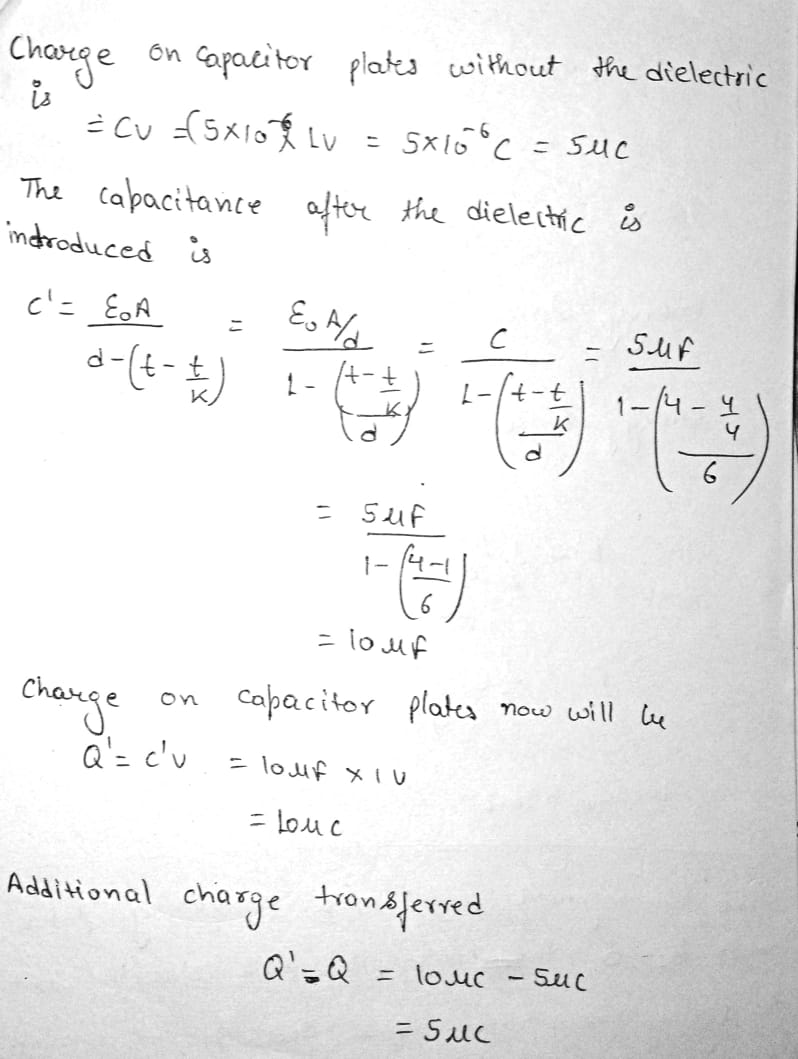 Charge on capacitor plates without the dielectric
is
= CV = (5×10⁻⁶) 1V = 5×10⁻⁶C = 5μC
The capacitance after the dielectric is
indroduced is
C' = ε₀A / (d-(t-t/K)) = (ε₀A/d) / (1-((t-t/K)/d)) = C / (1-((t-t/K)/d)) = 5μf / (1-((4-4/4)/6))
= 5μf / (1-((4-1)/6))
= 10μf
Charge on capacitor plates now will be
Q' = c'v = 10μf × 1V
= 10μc
Additional charge transferred
Q' - Q = 10μc - 5μc
= 5μc